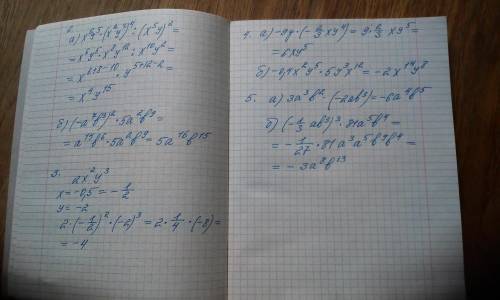 2.
а) x⁶y⁵·(x²y³)⁴:(x⁵y)²=
=x⁶y⁵·x⁸y¹²:x¹⁰y²=
=x⁶⁺⁸⁻¹⁰·y⁵⁺¹²⁻²=
=x⁴y¹⁵
б) (-a⁷b³)²·5a²b⁹=
=a¹⁴b⁶·5a²b⁹=5a¹⁶b¹⁵
3.
ax²y³
x=-0,5=-1/2
y=-2
2·(-1/2)²·(-2)³=2·1/4·(-8)=
=-4
4. а) -9y·(-2/3xy⁴)=9·2/3xy⁵=
=6xy⁵
б) -0,4x²y⁵·5y³x¹²=-2x¹⁴y⁸
5. а) 3a³b²·(-2ab³)=-6a⁴b⁵
б) (-1/3ab³)³·81a⁵b⁴=
=-1/27·81a³a⁵b⁹b⁴=
=-3a⁸b¹³